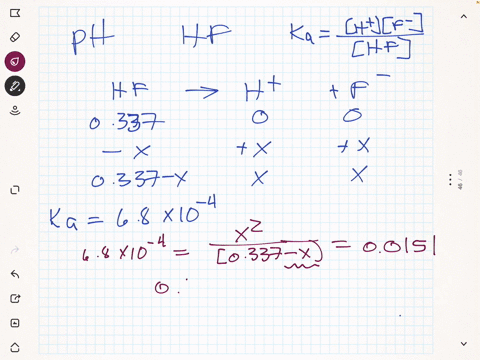 pH HF Ka = [H⁺][F⁻] / [HF]
HF → H⁺ + F⁻
0.337 0 0
- x +x +x
0.337-x x x
Ka = 6.8 x10⁻⁴
6.8 x10⁻⁴ = x² / [0.337-x) = 0.0151
0.